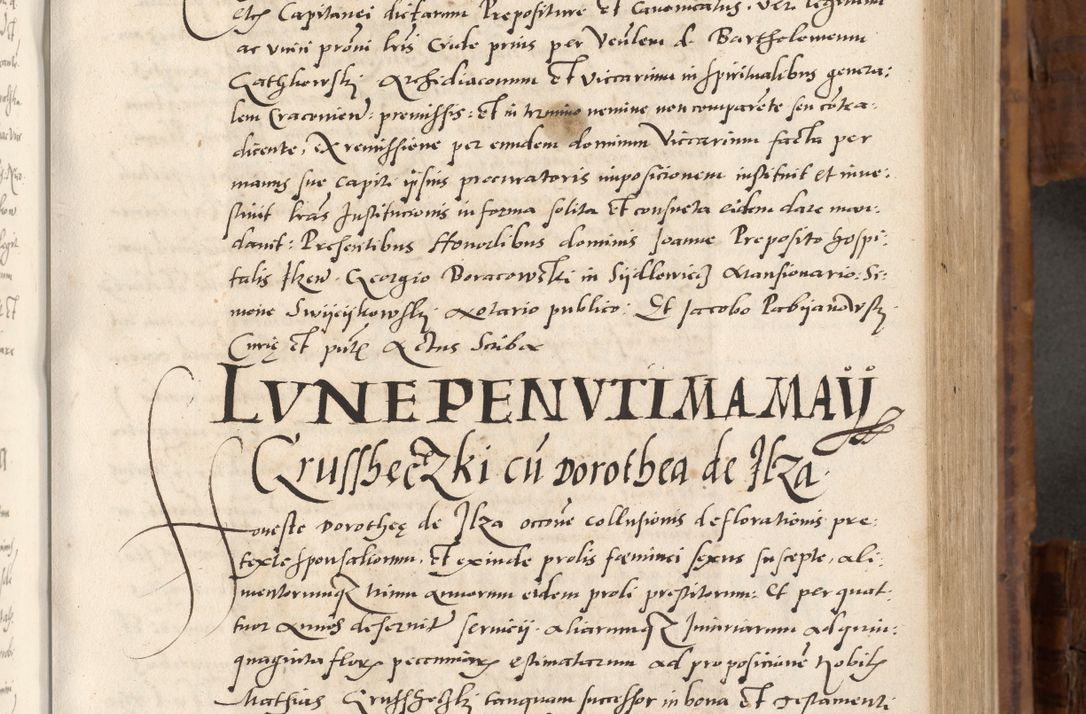 etc Capitanei dictarum Prepositure et Canonicatus. Ver. legittimi
ac unici proni lris Crude prius per Venlem d. Bartholomeum
Gathkowski Archidiaconum Et Viccarium in spiritualibus genera:
lem Cracovien: premissis: Et in termino nemine non comparente seu contra:
dicente, Ex remissione per eundem dominum Viccarium facta per
manus sue capiti ipsius procuratoris imposicionem instituit et inve:
stivit lras Institucionis in forma solita Et consueta eidem dare man:
davit: Presentibus Honorlibus dominis Joanne Preposito hospi:
talis Ilzen. Georgio Doracowski in Sijdlowiecz Mansionario. Si:
mone Swijeijkowski. Notario publico. Et Jacobo Pabijanowski.
Curię et putis Actus Scriba
LVNE PENVTIMA MAIJ
Crusshęczki cu Dorothea de Ilza.
Honeste Dorotheę de Ilza occone collusionis deflorationis pre:
texte sponsaliorum, Et exinde prolis fœminei sexus suscepte, ali:
mentorumq trium annorum eidem proli prestitorum: Et per quat:
tuor annos deservit servicij. aliarumq Iniuriarum ad quin:
quaginta flor pecuniar estimatarum ad proposicione Nobil
Mathias Crusshechki tanquam successor in bona Et testamenti